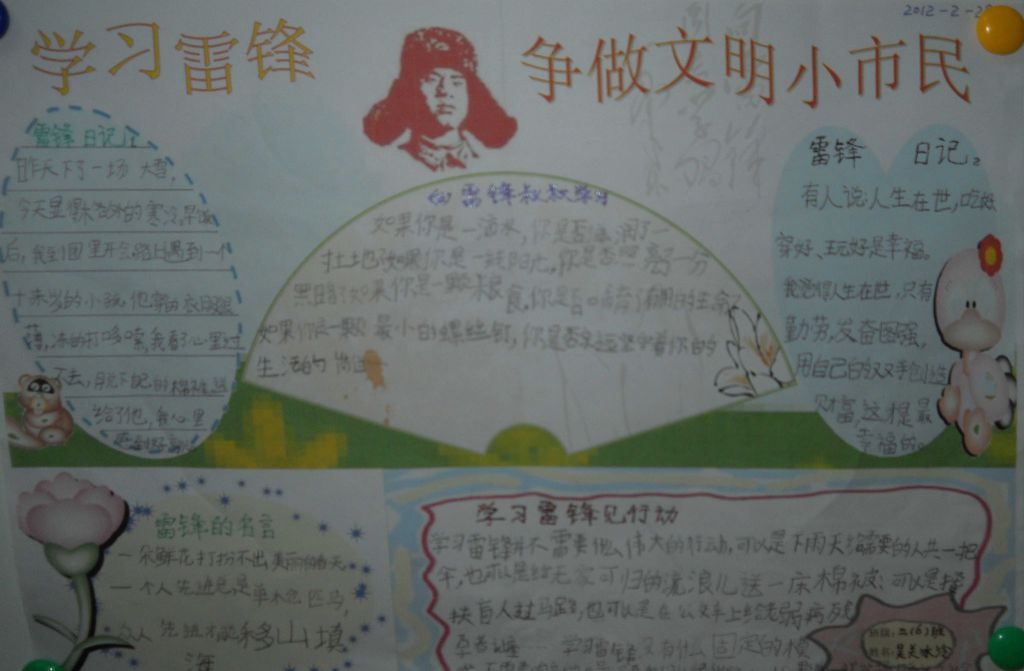 2012-2-2
学习雷锋
争做文明小市民
雷锋日记1
昨天下了一场大雪,
今天显得格外的寒冷,早饭
后,我到团里开会路上遇到一个
十来岁的小孩,他穿的衣服很
薄,冻的打哆嗦,我看了心里过
不去,脱下自己的棉
给了他,我心里
感到
向雷锋叔叔学习
如果你是一滴水,你是否滋润了一
土地?如果你是一线阳光,你是否照亮了一分
黑暗?如果你是一颗粮食,你是否哺育了有用的生命?
如果你是一颗最小的螺丝钉,你是否永远坚守着你的
生活的岗位
雷锋日记2
有人说:人生在世,吃好
穿好、玩好是幸福。
我觉得人生在世,只有
勤劳,发奋图强,
用自己的双手创造
财富这才是最
幸福的。
雷锋的名言
一朵鲜花打扮不出美丽的春天
一个人先进总是单木匹马,
众人先进才能移山填
海
学习雷锋见行动
学习雷锋并不需要什么伟大的行动,可以是下雨天给需要的人共一把
伞,也可以是给无家可归的流浪儿送一床棉被;可以是搀
扶盲人过马路,也可以是在公交车上给老弱病残
学习雷锋又有什么固定的模
班级:二(6)班
姓名:吴